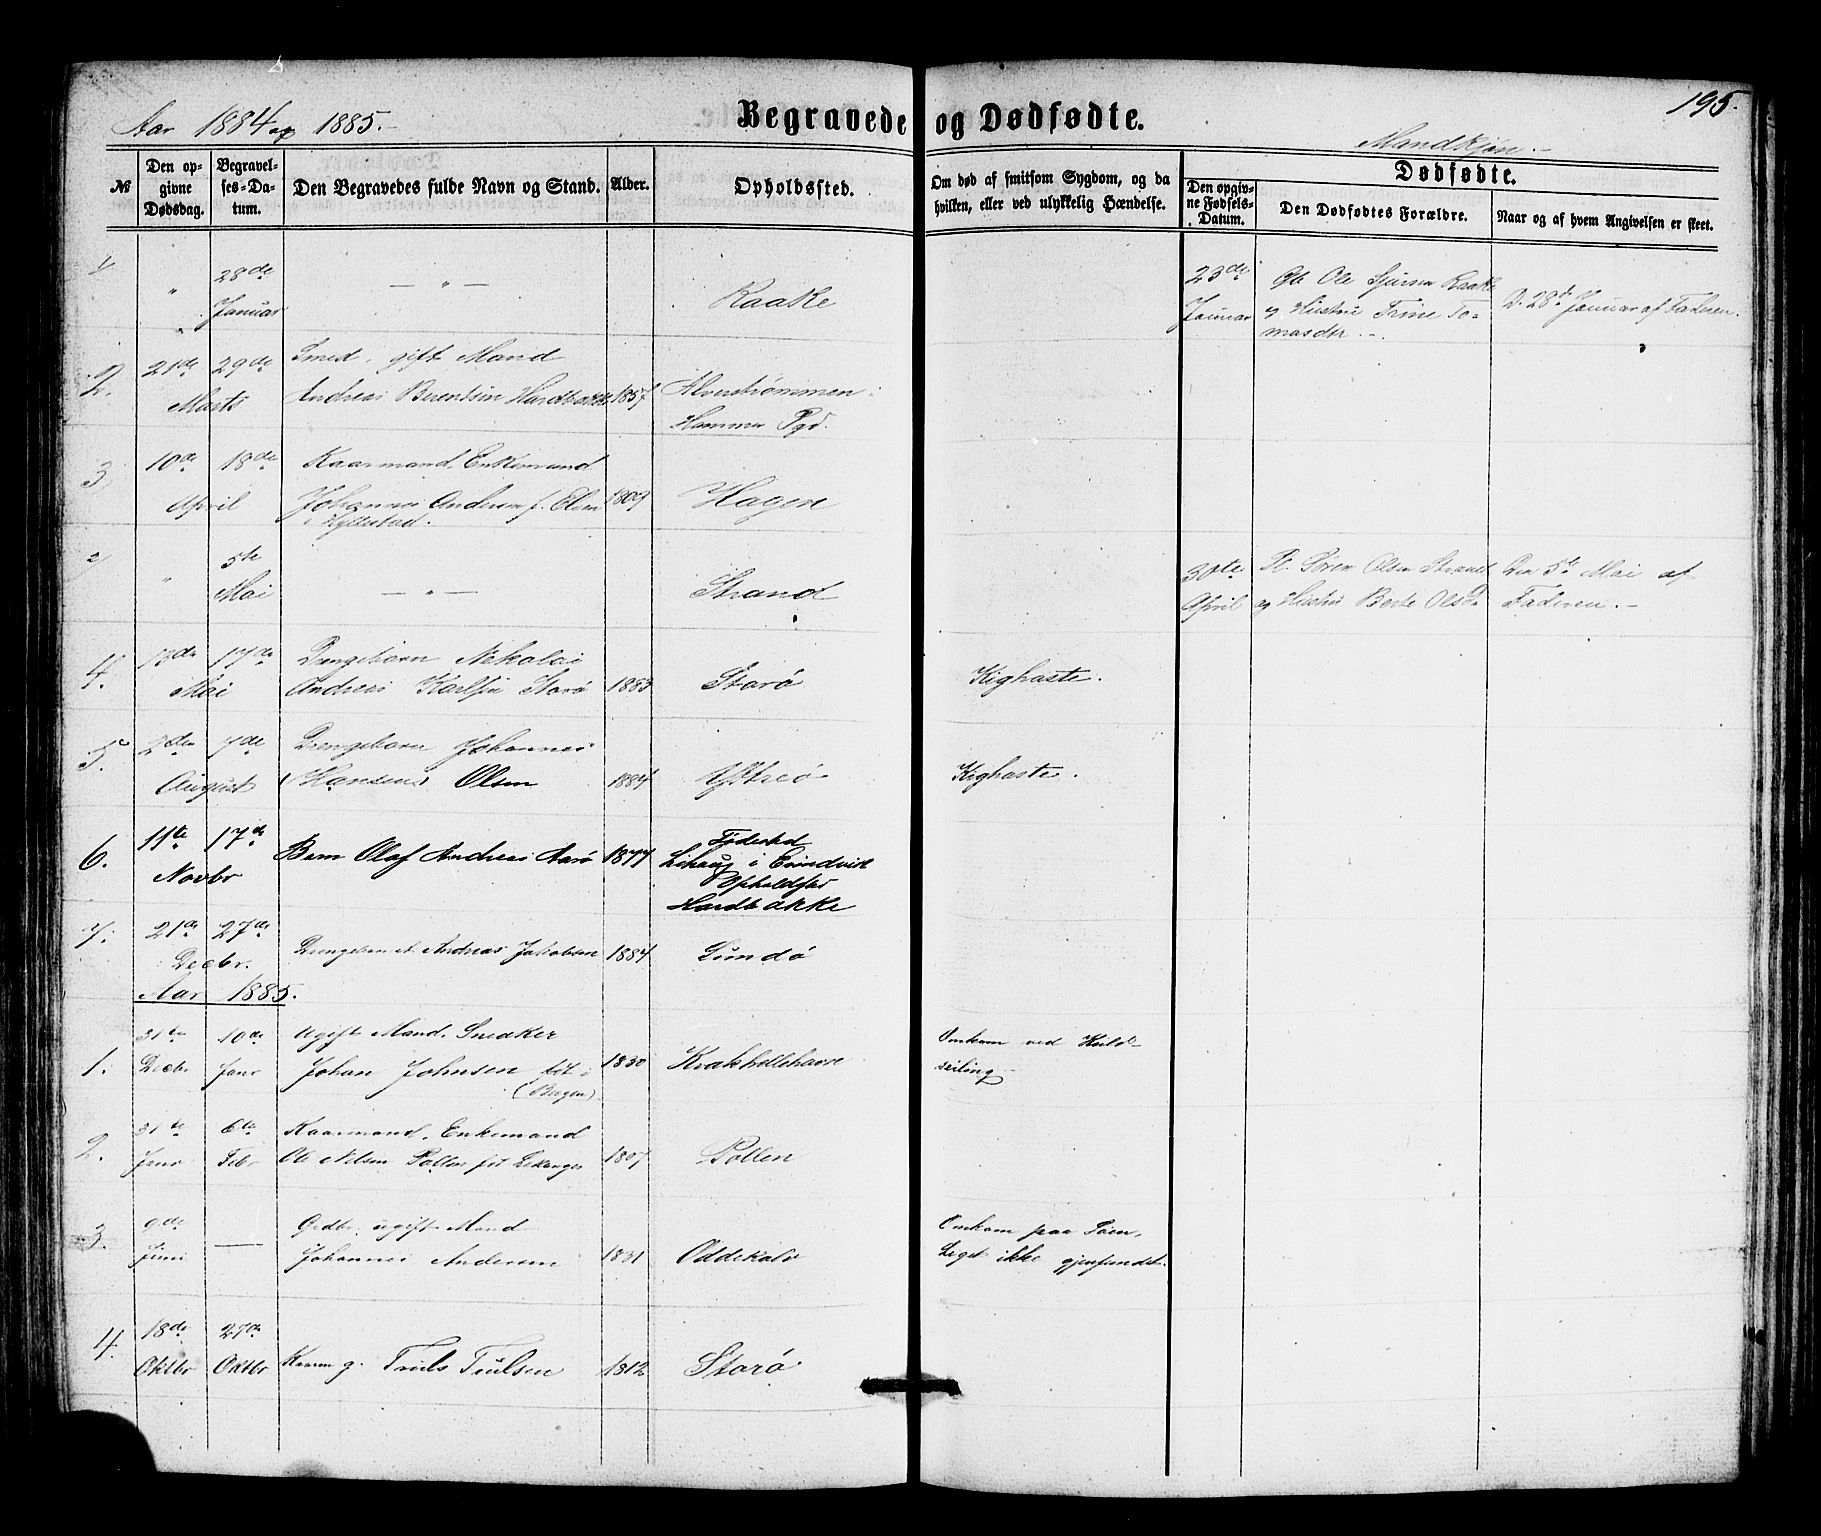 Aar 1884 og 1885.-
Begravede og Dødfødte.
195.
Mandkjøn.-
№
Den opgivne Dødsdag.
Begravelses-Datum.
Den Begravedes fulde Navn og Stand.
Alder.
Opholdssted.
Om død af smitsom Sygdom, og da hvilken, eller ved ulykkelig Hændelse.
Dødfødte.
Den opgivne Fødsels-Datum.
Den Dødfødtes Forældre.
Naar og af hvem Angivelsen er skeet.
1 " 28de Januar — " — Raake 23de Januar Gb Ole Sjursen Raake
og Hustru Trine To-
masdtr. -
D. 28de Januar af Faderen.
2. 21de 29de Marts Smed, gift Mand
Andreas Berentsen Hardbakke 1857 Alverstrømmen
Hammer Pgd.
3 10de 18de April Kaarmand, Enkemand
Johannes Andersen f. Elven 1809 Hagen
i Hyllestad.
2 " 5te Mai — " — Strand 30te April Pl. Søren Olsen Strand
og Hustru Berte Olsd.
Den 5te Mai af
Faderen.-
4. 13de 17de Mai Drengebarn Nekolai
Andreas Karlsen Storø 1883 Storø Kighoste.
5. 2den 7de August Drengebarn Johannes
(Hansen) Olsen 1884 Ytreø Kighoste.
6. 11te 17de Novbr Barn Olaf Andreas Aarø 1877 Fødested
i Evindvik
Opholdssted
Hardbakke
7. 21de 27de Decbr. Drengebarn Andreas Jakobsen 1884 Gundø
Aar 1885.
1. 31te Decbr 10de Janr Ugift Mand, Snedker
Johan Johnsen 1830 Krakhellehavn
(Bergen)
Omkom ved Kuld-
seiling
2. 31te Janr 6te Febr Kaarmand, Enkemand
Ole Nelsen Pollen 1807 Pollen
3. 9de Juni — Grdbr. ugift Mand
Johannes Andersen 1831 Oddekalv
Omkom paa Søen,
Liget ikke gjenfundet.
4. 18de Oktbr 27de Oktbr Kaarm g. Truls Trulsen 1812 Storø